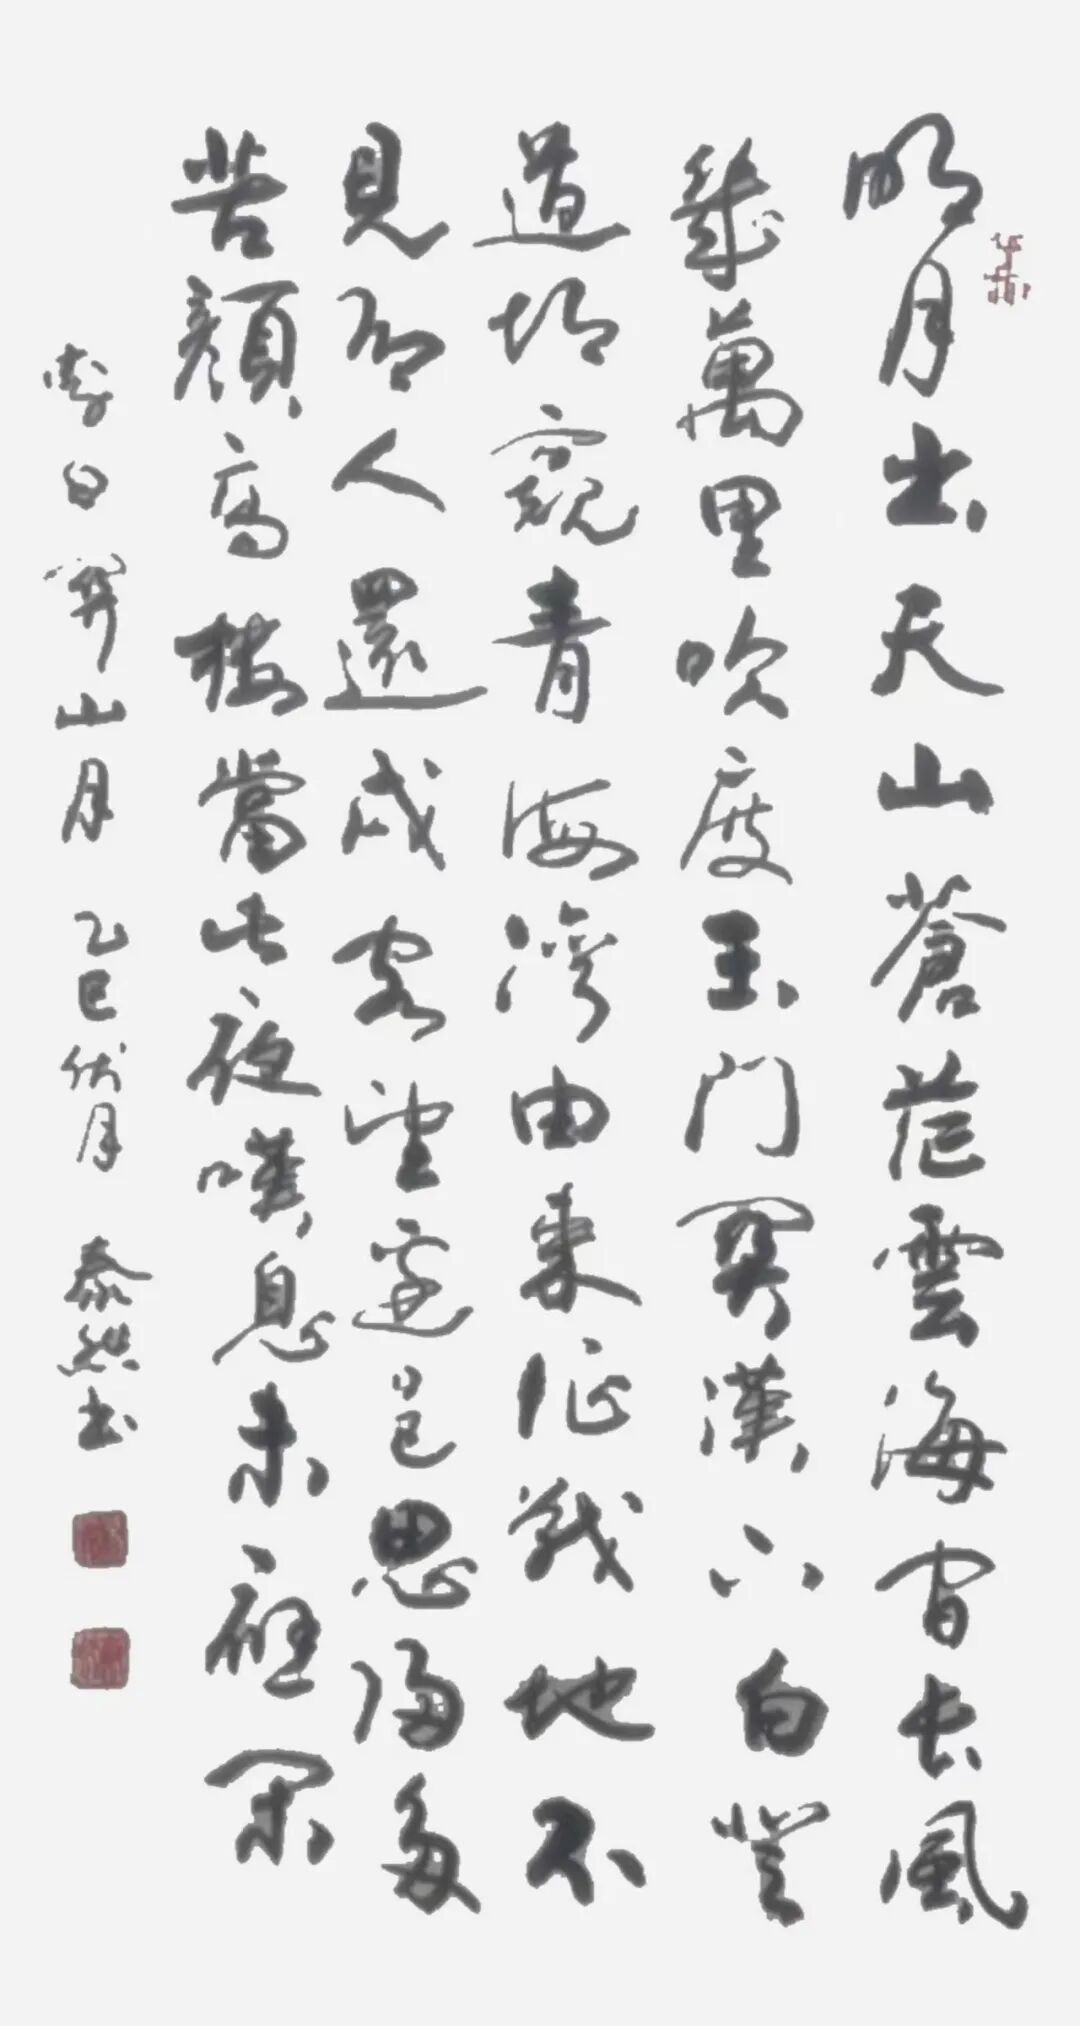 明月出天山蒼茫雲海間長風
幾萬里吹度玉門關漢下白登
道胡窺青海灣由來征戰地不
見有人還戍客望邊邑思歸多
苦顏高樓當此夜嘆息未應閑
李白關山月 乙巳伏月 泰然书